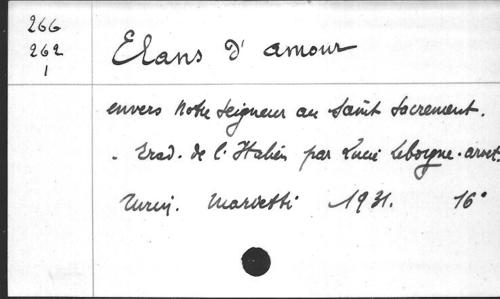 266
262
1
Elans d'amour
envers Notre Seigneur au Saint Sacrement.
. Trad. de l'Italien par Lucie Leborgne-arvet.
Turin. Marietti 1931. 16°